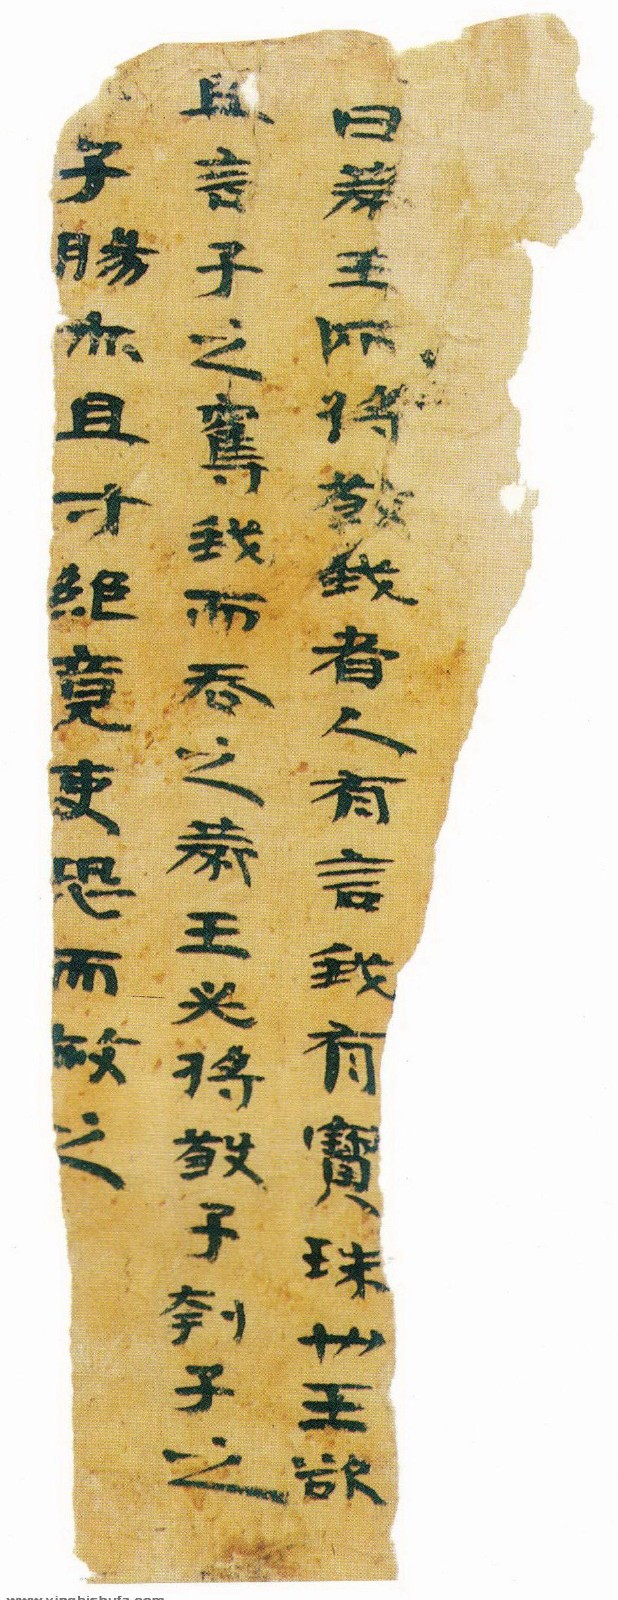 曰燕王所將殺我者人有言我有寶珠也王欲
且言子之奪我而吞之燕王必將殺子刳子之
子腸亦且寸絕竟吏恐而赦之
www.yingbishufa.com